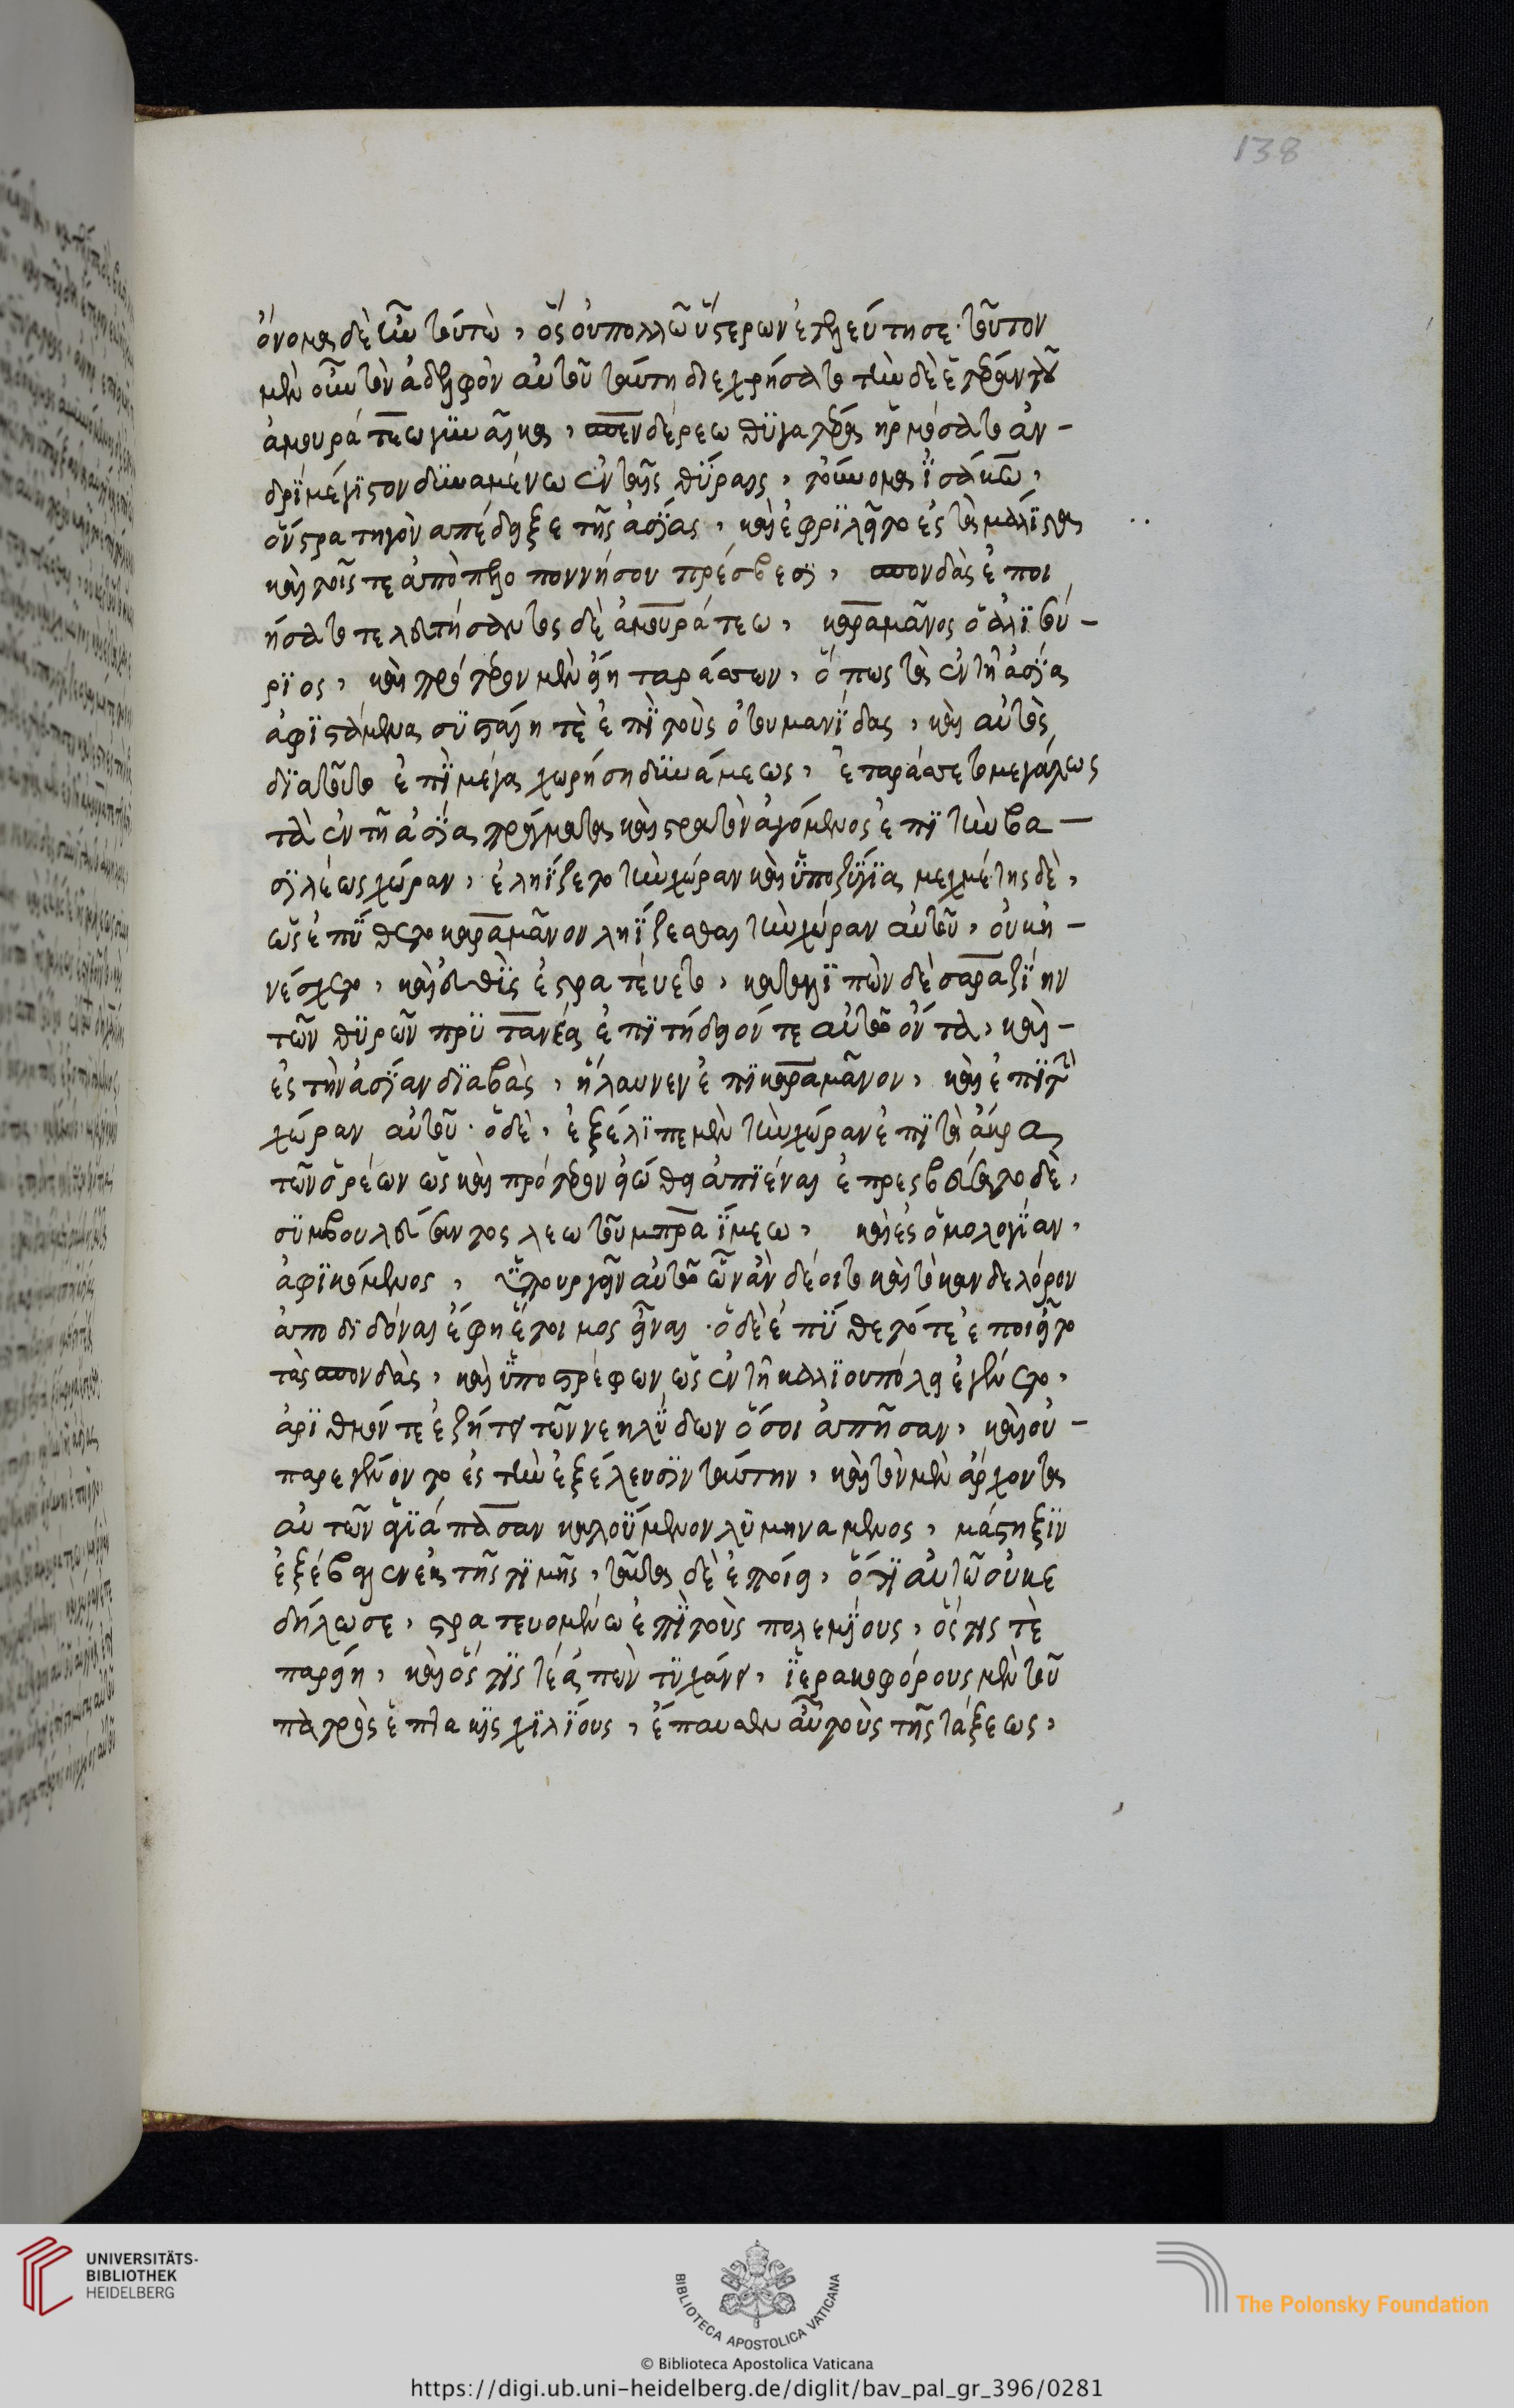 138
ὄνομα δὲ ἦν τούτω, ὃς οὐ πολλῶ ὕστερον ἐτελεύτησε. τοῦτον
μὲν οὖν τὸν ἀδελφὸν αὐτοῦ ταύτη διεχρήσατο τὴν δὲ ἑτέραν τοῦ
ἀμουράτεω γυναῖκα, σπενδέρεω θυγατέρα ἡρμόσατο ἀν-
δρὶ μέγιστον δυναμένω ἐν ταῖς θύραις, τοὔνομα ἰσάκω,
ὃν στρατηγὸν ἀπέδειξε τῆς ἀσίας, καὶ ἐφιλεῖτο ἐς τὰ μάλιστα
καὶ τοῖς τε ἀπὸ πελοποννήσου πρέσβεσι, σπονδὰς ἐποι
ήσατο τελευτήσαντος δὲ ἀμουράτεω, καραμᾶνος ὁ ἀλιτού-
ριος, καὶ πρότερον μὲν εἴη ταράσσων, ὅπως τὰ ἐν τῆ ἀσία
ἀφιστάμενα συσταίη τὲ ἐπὶ τοὺς ὀτουμανίδας, καὶ αὐτὸς
διὰ τοῦτο ἐπὶ μέγα χωρήση δυνάμεως, ἐταράσσετο μεγάλως
τὰ ἐν τῆ ἀσία πράγματα καὶ στρατὸν ἀγόμενος ἐπὶ τὴν βα-
σιλέως χώραν, ἐληΐζετο τὴν χώραν καὶ ὑποζύγια μεχμέτης δὲ,
ὡς ἐπύθετο καραμᾶνον ληΐζεσθαι τὴν χώραν αὐτοῦ, οὐκ ἠ-
νέσχετο, καὶ εὐθὺς ἐστρατεύετο, καταλιπὼν δὲ σαραζίην
τῶν θυρῶν πρυτανέα ἐπιτήδειόν τε αὐτῶ ὄντα, καὶ-
ἐς τὴν ἀσίαν διαβὰς, ἤλαυνεν ἐπὶ καραμᾶνον, καὶ ἐπὶ τὴν
χώραν αὐτοῦ. ὁ δὲ, ἐξέλιπε μὲν τὴν χώραν ἐπὶ τὰ ἄκρα
τῶν ὀρέων ὡς καὶ πρότερον εἰώθει ἀπιέναι ἐπρεσβεύετο δὲ,
συμβουλεύοντος λεω τοῦ μπραΐμεω, καὶ ἐς ὁμολογίαν,
ἀφικόμενος, ὑπουργεῖν αὐτῶ ὧν ἂν δέοιτο καὶ τὸ κανδελόρον
ἀποδιδόναι ἔφη ἕτοιμος εἶναι. ὁ δὲ ἐπύθετό τε ἐποιεῖτο
τὰς σπονδὰς, καὶ ὑποστρέφων ὡς ἐν τῆ καλιουπόλει ἐγένετο,
ἀριθμόν τε ἐζήτει τῶν νεηλύδων ὅσοι ἀπῆσαν, καὶ οὐ-
παρεγένοντο ἐς τὴν ἐξέλευσιν ταύτην, καὶ τὸν μὲν ἄρχοντα
αὐτῶν γιάπασαν καλούμενον λυμηνάμενος, μάστιξιν
ἐξέβαλεν ἐκ τῆς τιμῆς, ταῦτα δὲ ἐποίει, ὅτι αὐτῶ οὐκ ἐ
δήλωσε, στρατευομένω ἐπὶ τοὺς πολεμίους, ὅς τις τὲ
παρείη, καὶ ὅς τις τε ἀπὼν τυχάνει, ἱερακοφόρους μὲν τοῦ
πατρὸς ἑπτακισχιλίους, ἔπαυσεν αὐτοὺς τῆς τάξεως,
UNIVERSITÄTS-
BIBLIOTHEK
HEIDELBERG
BIBLIOTECA APOSTOLICA VATICANA
The Polonsky Foundation
© Biblioteca Apostolica Vaticana
https://digi.ub.uni-heidelberg.de/diglit/bav_pal_gr_396/0281